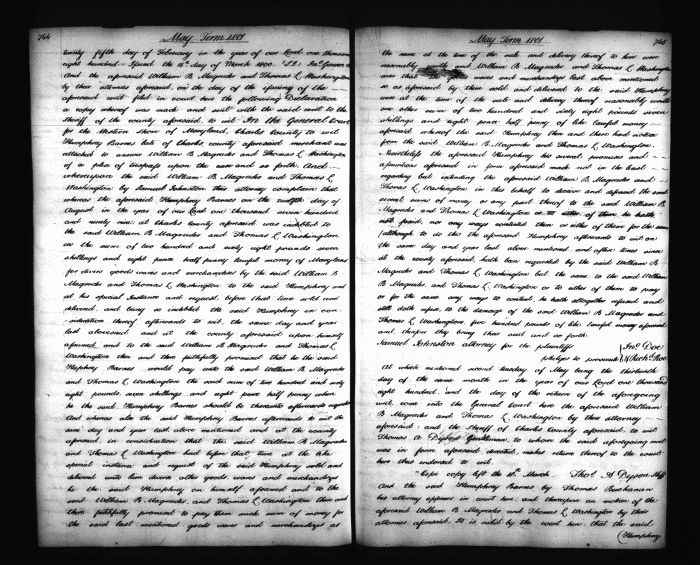 744
May Term 1801
twenty fifth day of February in the year of our Lord one thousand
eight hundred. Issued the 15th day of March 1800.
And the aforesaid William B Magruder and Thomas L Washington
by their attorney aforesaid, on the day of the of the
aforesaid writ filed in court here the following Declaration
a copy whereof was made and sent with the said writ to the
Sheriff of the county aforesaid, to wit In the General Court
for the Western Shore of Maryland, Charles County to wit
Humphrey Barnes late of Charles county aforesaid merchant was
attached to answer William B Magruder and Thomas L Washington
of a plea of trespass upon the case and so forth. And
whereupon the said William B Magruder and Thomas L
Washington by Samuel Johnston their attorney complain that
whereas the aforesaid Humphrey Barnes on the twelfth day of
August in the year of our Lord one thousand seven hundred
and ninety nine at Charles county aforesaid was indebted to
the said William B Magruder and Thomas L Washington
in the sum of two hundred and sixty eight pounds seven
shillings and eight pence half penny lawful money of Maryland
for divers goods wares and merchandizes by the said William B
Magruder and Thomas L Washington to the said Humphrey and
at his special Instance and request, before that time sold and
delivered, and being so indebted the said Humphrey in con-
sideration thereof afterwards to wit, the same day and year
last abovesaid and at the county aforesaid upon himself
assumed and to the said William B Magruder and Thomas L
Washington then and there faithfully promised that he the said
Humphrey Barnes would pay unto the said William B Magruder
and Thomas L Washington the said sum of two hundred and sixty
eight pounds, seven shillings and eight pence half penny when
he the said Humphrey Barnes should be thereunto afterwards requested
And whereas also the said Humphrey Barnes afterwards to wit the
same day and year last above mentioned and at the county
aforesaid, in consideration that the said William B Magruder
and Thomas L Washington had before that time at the like
special instance and request of the said Humphrey sold and
delivered unto him divers other goods, wares and merchandizes
he the said Humphrey on himself assumed and to the
said William B Magruder, and Thomas L Washington then and
there faithfully promised to pay them such sum of money for
the said last mentioned goods wares and merchandizes as
745
May Term 1801
the same at the time of the sale and delivery thereof to him were
reasonably worth and William B Magruder and Thomas L Washington
aver that the goods wares and merchandizes last above mentioned
so as aforesaid by them sold and delivered to the said Humphrey
were at the time of the sale and delivery thereof reasonably worth
one other sum of two hundred and sixty eight pounds seven
shillings and eight pence half penny of like lawful money
aforesaid whereof the said Humphrey then and there had notice
from the said William B Magruder and Thomas L Washington.
Nevertheless the aforesaid Humphrey his several promises and
assumptions aforesaid in form aforesaid made not in the least
regarding but intending the aforesaid William B Magruder and
Thomas L Washington in this behalf to deceive and defraud the said
several sums of money or any part thereof to the said William B
Magruder and Thomas L Washington or to either of them he hath
not paid, nor any ways contented them or either of them for the same
(although to do this the aforesaid Humphrey afterwards to wit on
the same day and year last above mentioned and often times since
at the county aforesaid, hath been requested by the said William B
Magruder and Thomas L Washington but the same to the said William
B Magruder, and Thomas L Washington or to either of them to pay
or for the same any ways to content, he hath altogether refused and
still doth refuse, to the damage of the said William B Magruder and
Thomas L Washington, five hundred pounds of like lawful money aforesaid
and therefore they bring their suit and so forth
Samuel Johnston attorney for the plaintiffs
pledges to prosecute
Jno. Doe
Richd. Roe
At which mentioned second tuesday of May being the thirteenth
day of the same month in the year of our Lord one thousand
eight hundred and the day of the return of the aforegoing
writ, came into the General Court here the aforesaid William
B Magruder and Thomas L Washington by their attorney
aforesaid; and the Sheriff of Charles County aforesaid to wit
Thomas A Dyson Gentleman, to whom the said aforegoing writ
was in form aforesaid directed, makes return thereof to the court
here thus endorsed to wit.
"Cepi copy left the 21st March. Thos. A Dyson Shff
And the said Humphrey Barnes by Thomas Buchanan
his attorney appears in court here and thereupon on motion of the
aforesaid William B Magruder and Thomas L Washington by their
attorney aforesaid, It is ruled by the court here, that the said
(Humphrey